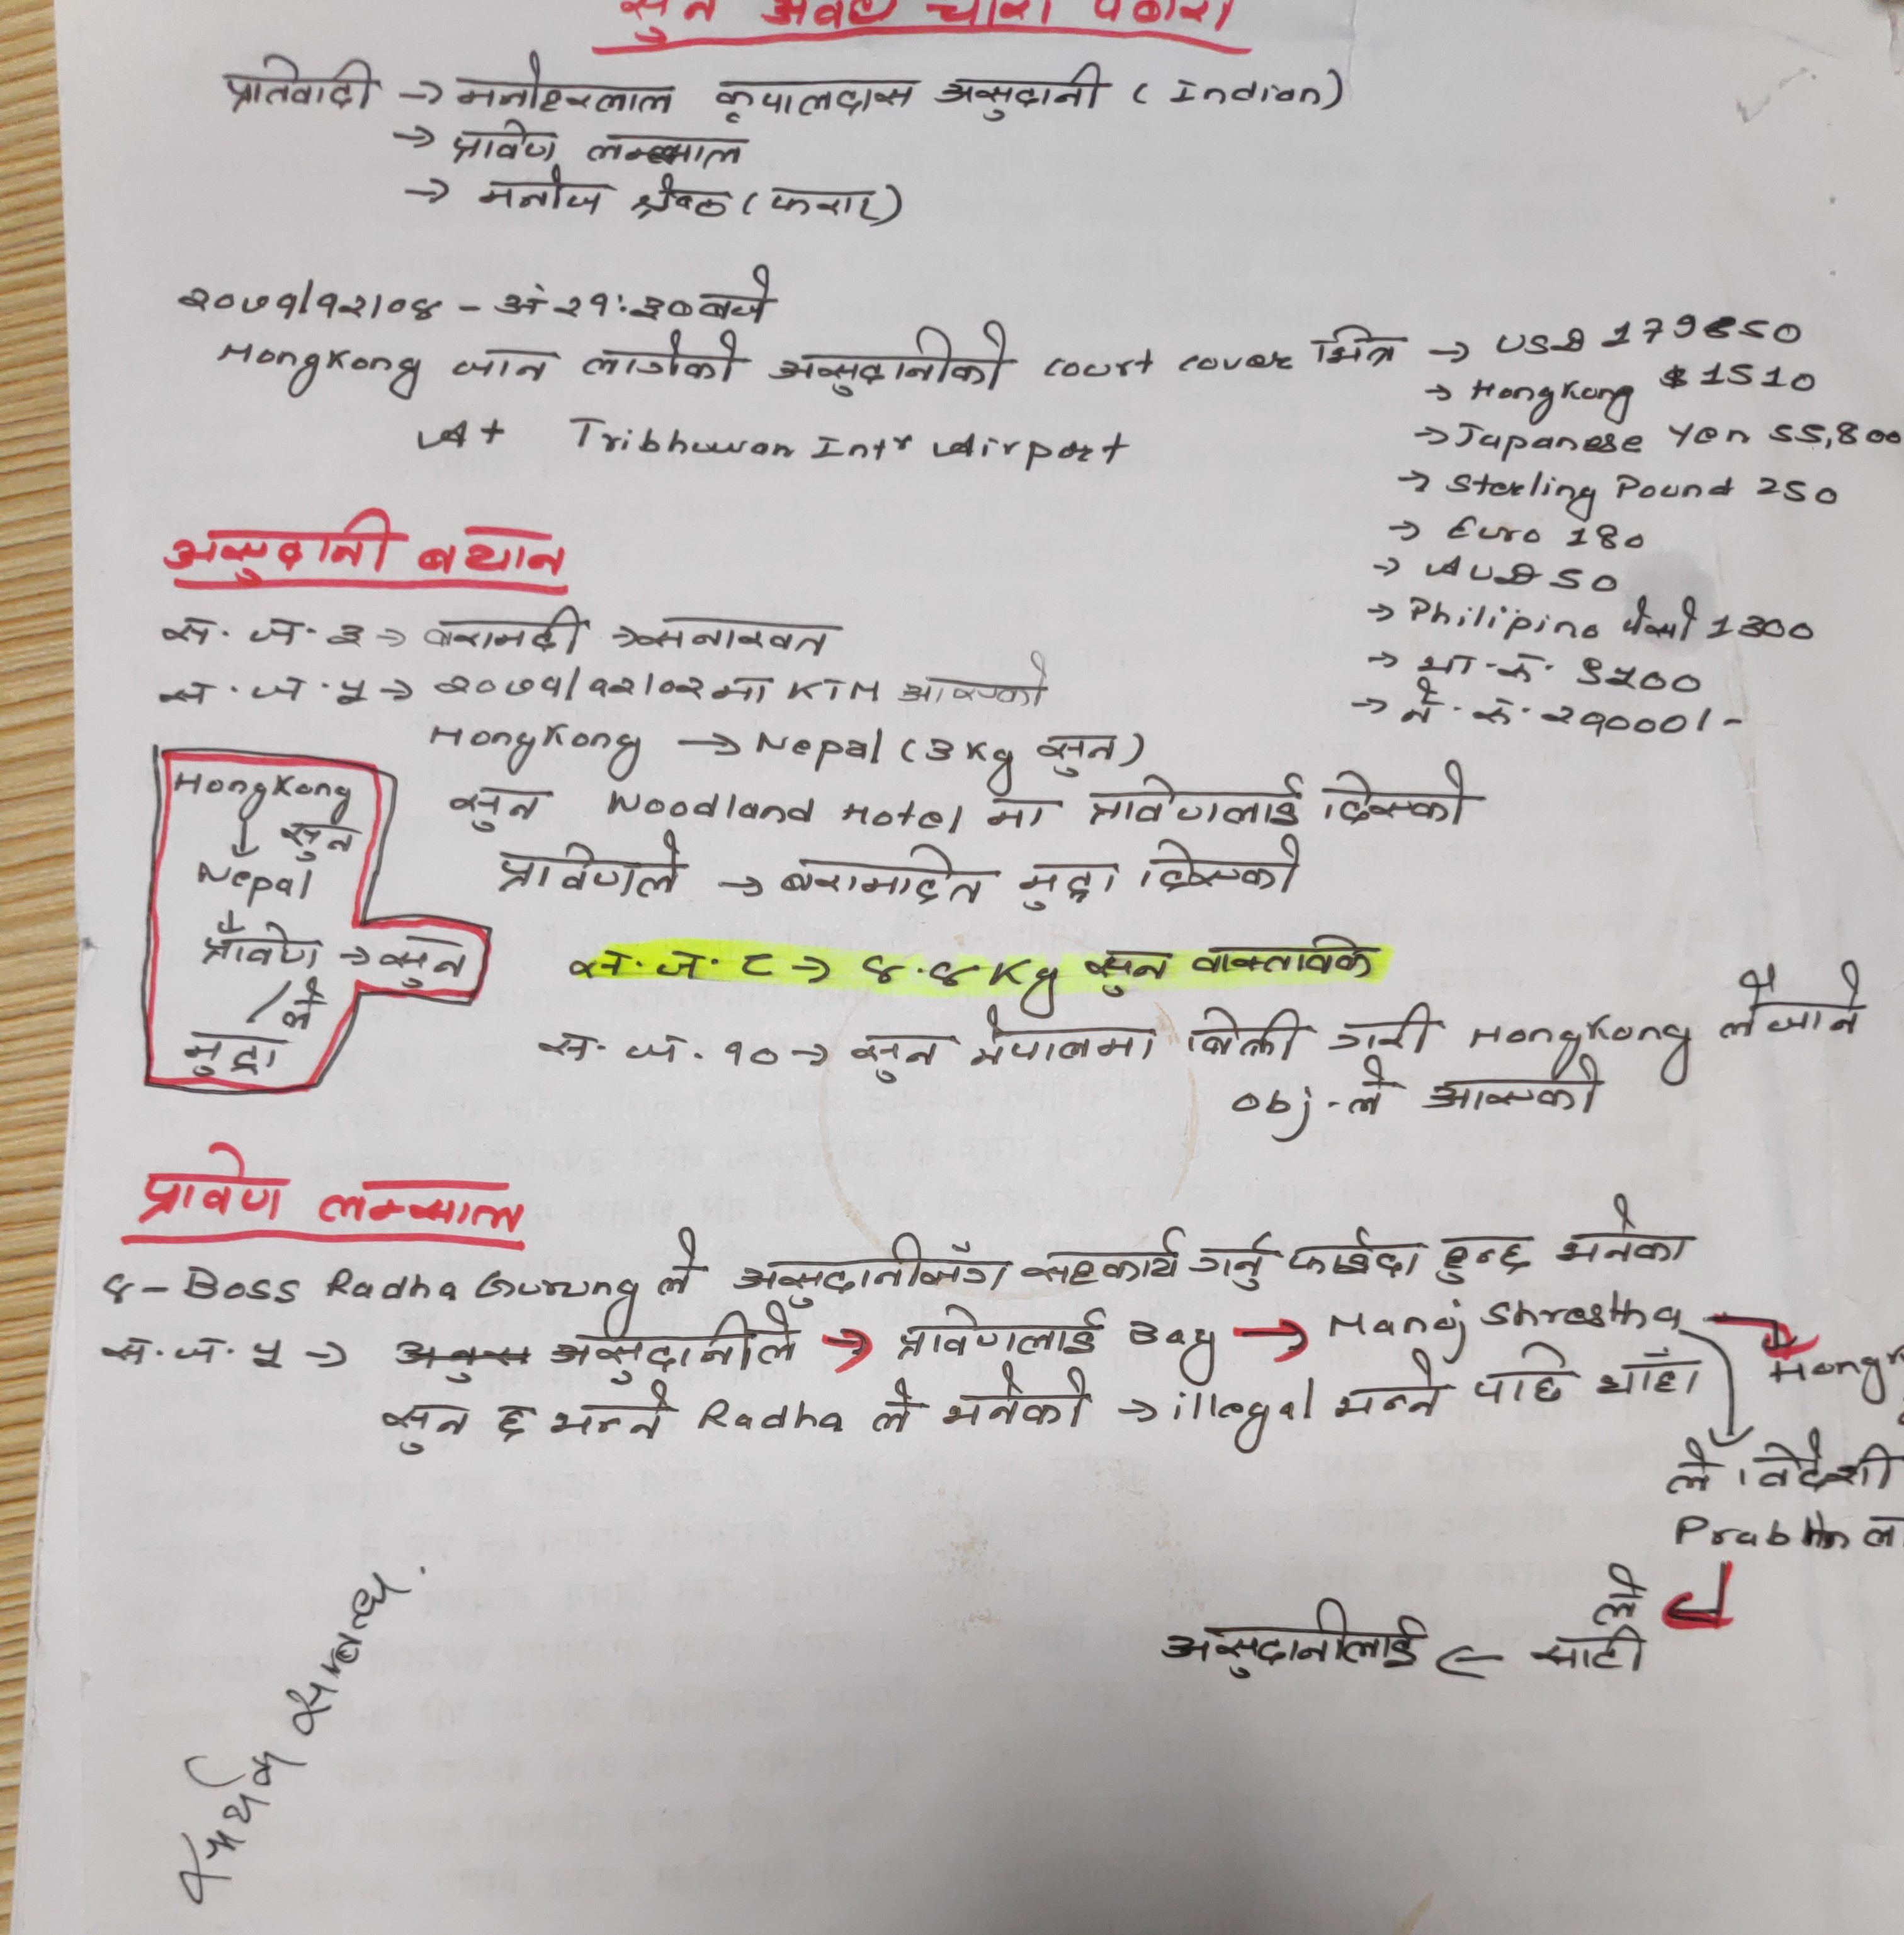 सुन अवैध चोरी पैठारी
प्रतिवादी → मनोहरलाल कृपालदास असुदानी ( Indian)
→ प्रविण लम्साल
→ मनोज श्रेष्ठ (फरार)
२०७१/१२/०४ - अं २१:३० बजे
HongKong जान लागेको असुदानीको court cover भित्र → USD 179650
→ HongKong $ 1510
→ Japanese Yen 55,800
At Tribhuwan Intr Airport
→ Sterling Pound 250
→ Euro 180
→ AUD 50
→ Philipino पेसो 1300
→ भा.रु. ९५००
→ ने.रु. २१०००/-
असुदानी बयान
स.ज. ३ → बरामदी → सनाखत
स.ज. ५ → २०७१/१२/०२मा KTM आएको
HongKong → Nepal (3 Kg सुन)
सुन Woodland Hotel मा प्रविणलाई दिएको
प्रविणले → बरामदित मुद्रा दिएको
HongKong
↓ सुन
Nepal
↓
प्रविण → सुन
/ ले
मुद्रा
स.ज. ८ → ४.४ Kg सुन वास्तविक
स.ज. १० → सुन नेपालमा बिक्री गरी HongKong लैजाने
obj-ले आएको
प्रविण लम्साल
४ - Boss Radha Gurung ले असुदानीसँग सहकार्य गर्नु फाईदा हुन्छ भनेका
स.ज. ५ → असुदानीले → प्रविणलाई Bag → Manoj Shrestha →
सुन छ भन्ने Radha ले भनेको → illegal भन्ने पछि थाहा
ले विदेशी
ले
असुदानीलाई ← साटी
आर्थिक सम्बन्ध.